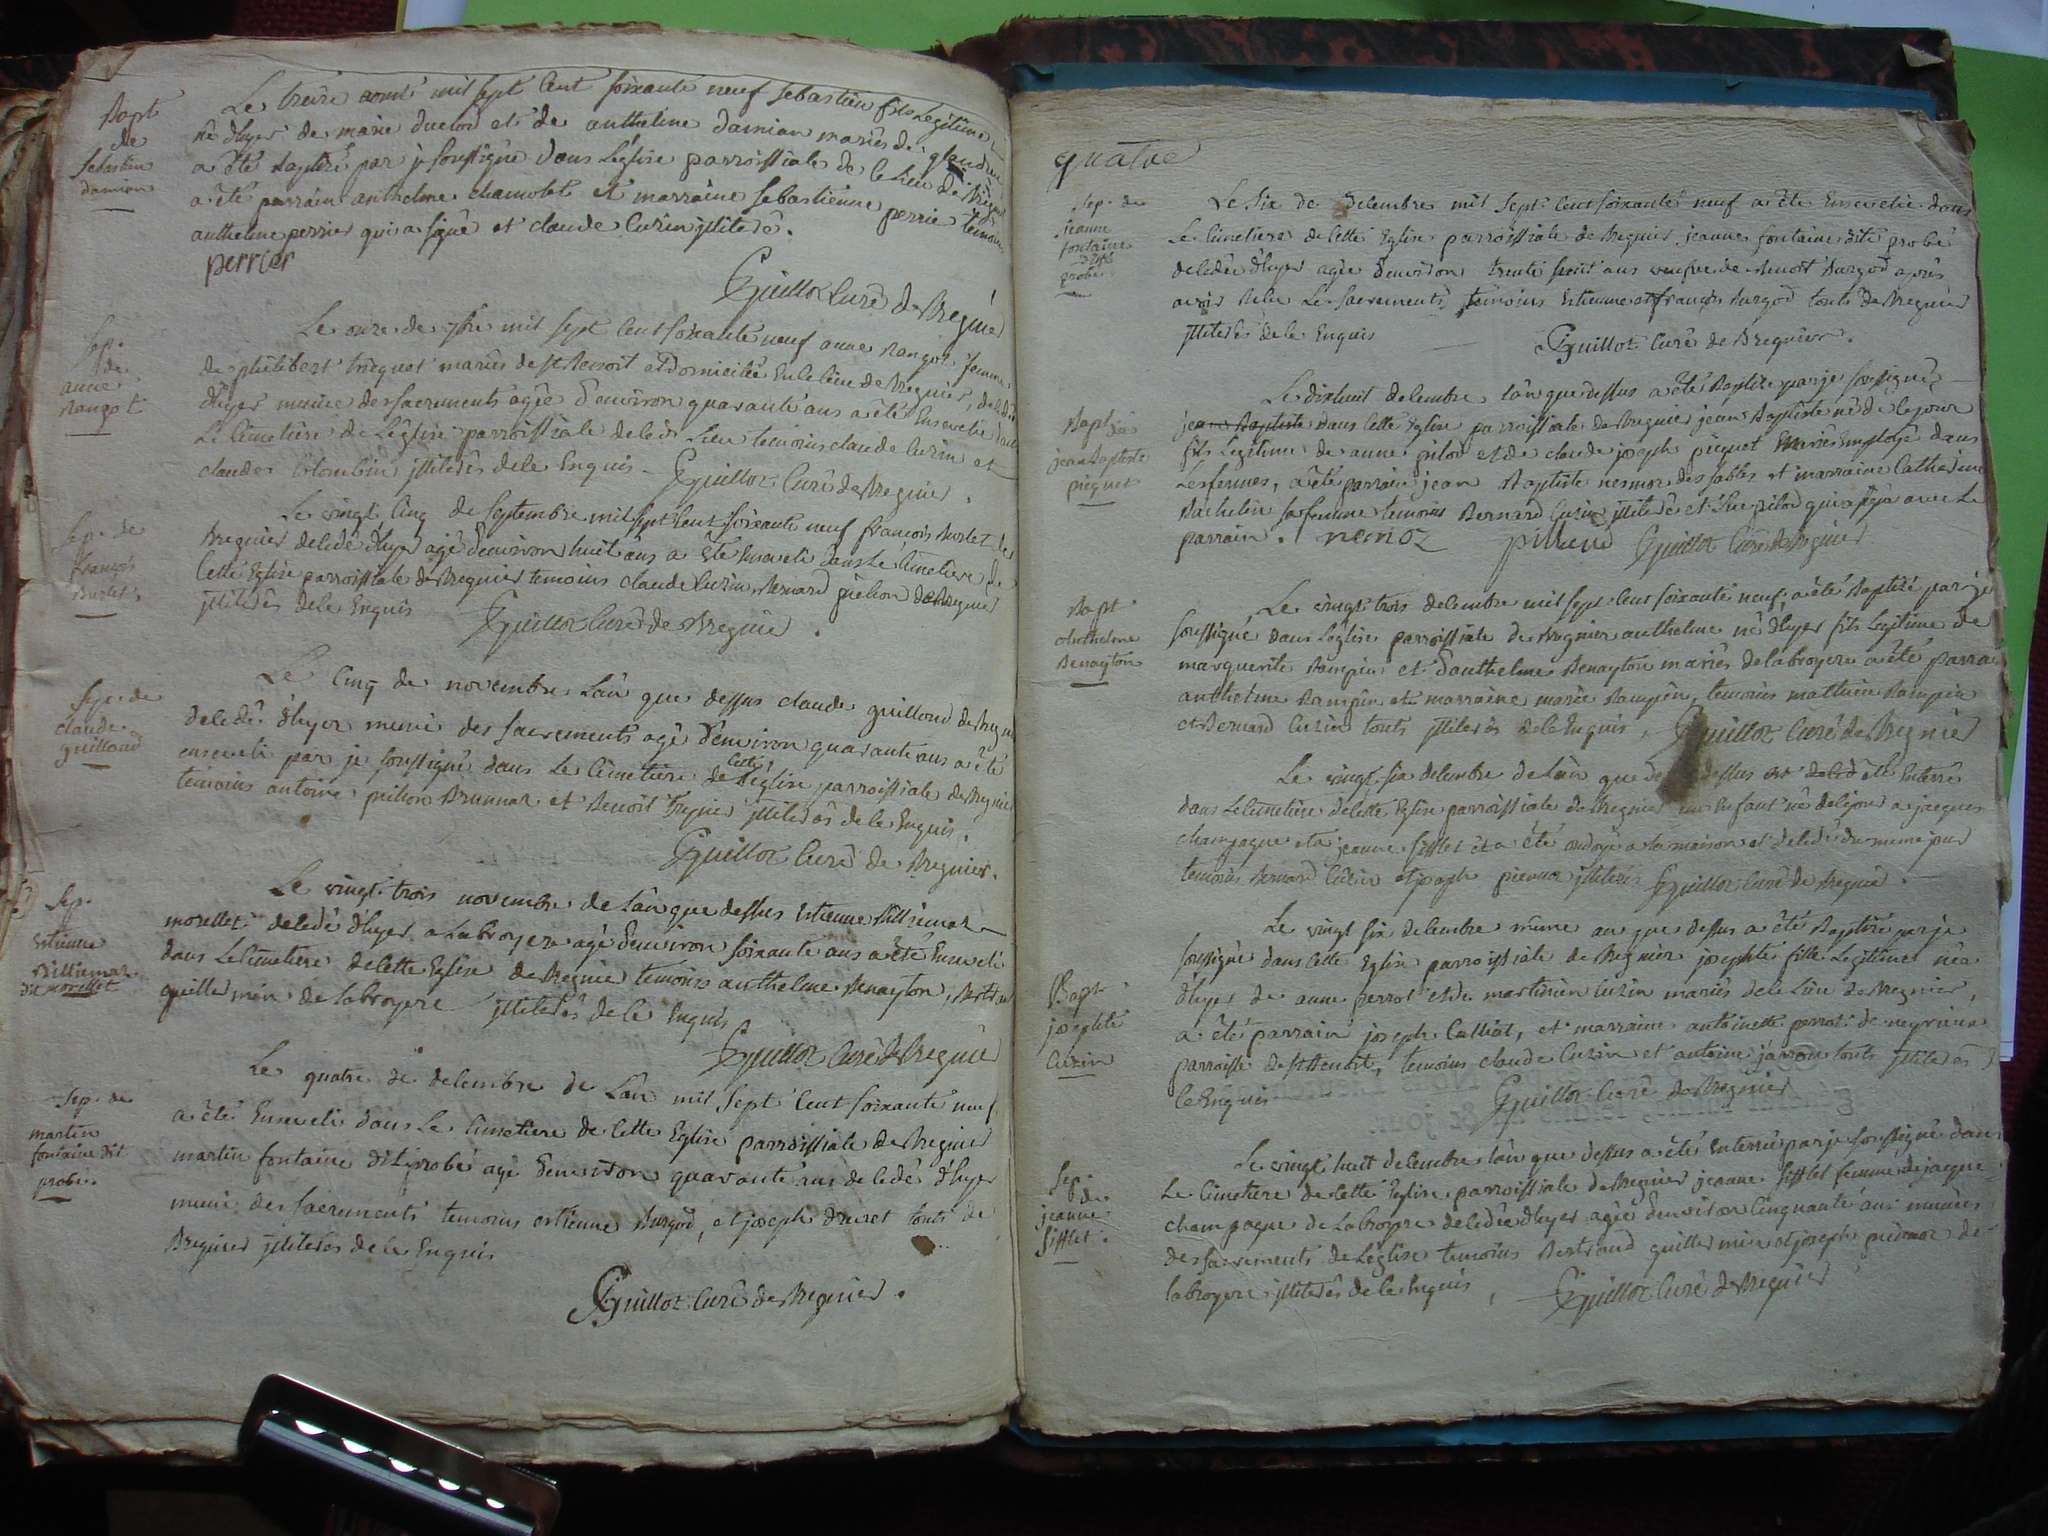 Bapt
de
Sebastien
damian
Le treize aout mil sept cent soixante neuf Sebastien fils Legitime
né d'hyer de marie ducrod et de antheline damian mariés de
a été baptizé par je soussigné dans L'eglise parroissiale de ce lieu de Bregnié
a été parrain anthelme chamolet et marraine Sebastienne perrie temoins
anthelme perrier qui a signé et claude Cuzin illiteré.
perrier
Guilloz Curé de Bregnié
Sep.
de
anne
Rangot
Le onze de 7bre mil sept cent soixante neuf anne Rangot femme
de philibert triquet mariés de st Benoit et domiciliée en ce lieu de Bregnier, decedée
d'hyer munie des sacrements agée d'environ quarante ans a été Ensevelie dans
Le Cimetiere de L'eglise parroissiale de ce lieu temoins claude Cuzin et
claude Colombin illiterés de ce Enquis Guilloz Curé de Bregnier.
Sep. de
françois
Burlet.
Le vingt Cinq de Septembre mil sept cent soixante neuf françois Burlet de
Bregnier decedé d'hyer agé d'environ huit ans a été Enseveli dans Le Cimetiere de
Cette Eglise parroissiale de Bregnier temoins claude Cuzin, Bernard de Bregnier
illiterés de ce Enquis Guilloz Curé de Bregnié.
Sep. de
claude
guilloud
Le Cinq de novembre L'an que dessus claude guilloud de Bregnié
decedé d'hyer muni des sacrements agé d'environ quarante ans a été
enseveli par je soussigné dans Le Cimetiere de Cette L'église parroissiale de Bregnier
temoins antoine et Benoit illiterés de ce Enquis.
Guilloz Curé de Bregnier.
Sep.
Estienne
dit morellet
Le vingt trois novembre de L'an que dessus Estienne
morellet decedé d'hyer a Labroyere agé d'environ soixante ans a été Enseveli
dans Le Cimetiere de Cette Eglise de Bregnié temoins anthelme Benayton, Bertrand
guillermin de Labroyere illiterés de ce Enquis
Guilloz Curé de Bregnié
Sep. de
martin
fontaine dit
probé.
Le quatre de decembre de L'an mil sept cent soixante neuf
a été Enseveli dans Le Cimetiere de Cette Eglise parroissiale de Bregnier
martin fontaine dit probé agé d'environ quarante ans decedé d'hyer
muni des sacrements temoins estienne Burgod, et joseph druet touts de
Bregnier illiterés de ce Enquis
Guilloz Curé de Bregnier.
quatre
Sep. de
jeanne
fontaine
dite
probé
Le Six de Decembre mil sept cent soixante neuf a été Ensevelie dans
Le Cimetiere de Cette Eglise parroissiale de Bregnier jeanne fontaine dite probé
decedée d'hyer agée d'environ trente huit ans veufve de Benoit Burgod aprés
avoir Relu Les sacrements, temoins Estienne et françois Burgod touts de Bregnier
illiterés de ce Enquis Guilloz Curé de Bregnier.
Bapt
de
jean Baptiste
piquet
Le dixhuit decembre L'an que dessus a été Baptizé par je soussigné
jean Baptiste dans Cette Eglise parroissiale de Bregnier jean Baptiste né de Ce jour
fils Legitime de anne pilod et de claude joseph piquet Employé dans
Les fermes, a été parrain jean Baptiste nemoz des sables et marraine Catherine
Bachelin sa femme temoins Bernard Cuzin illiteré et pilod qui a signé avec Le
parrain. nemoz pillioud Guilloz Curé de Bregnier
Bapt
Anthelme
Benayton
Le vingt trois decembre mil sept cent soixante neuf, a été Baptizé par je
soussigné dans L'eglise parroissiale de Bregnier anthelme né d'hyer fils Legitime de
marguerite Rampin et d'anthelme Benayton mariés de labroyere a été parrain
anthelme Rampin et marraine marie Rampin, temoins mathieu Rampin
et Bernard Cuzin touts illiterés de ce Enquis, Guilloz Curé de Bregnier
Le vingt six decembre de L'an que dessus été Enterré
dans Le Cimetiere de Cette Eglise parroissiale de Bregnier un Enfant né de ce jour a jacques
champagne et a jeanne Sifflet et a été ondoyé a la maison et decedé du meme jour
temoins Bernard Cuzin et joseph illiterés Guilloz Curé de Bregnié.
Bapt
josephte
Cuzin
Le vingt six decembre meme an que dessus a été Baptizée par je
soussigné dans Cette Eglise parroissiale de Bregnier josephte fille Legitime née
d'hyer de anne perrot et de martinien Cuzin mariés de ce Lieu de Bregnier,
a été parrain joseph Calliat, et marraine antoinette perrot de
parroisse de st Benoit, temoins claude Cuzin et antoine jarron touts illiterés de
ce Enquis Guilloz Curé de Bregnier
Sep.
de
jeanne
Sifflet.
Le vingt huit decembre L'an que dessus a été Enterrée par je soussigné dans
Le Cimetiere de Cette Eglise parroissiale de Bregnier jeanne Sifflet femme de jacque
champagne de Labroyere decedée d'hyer agée d'environ Cinquante ans munie
des sacrements de L'eglise temoins Bertrand guillermin et joseph de
labroyere illiterés de ce Enquis, Guilloz Curé de Bregnier